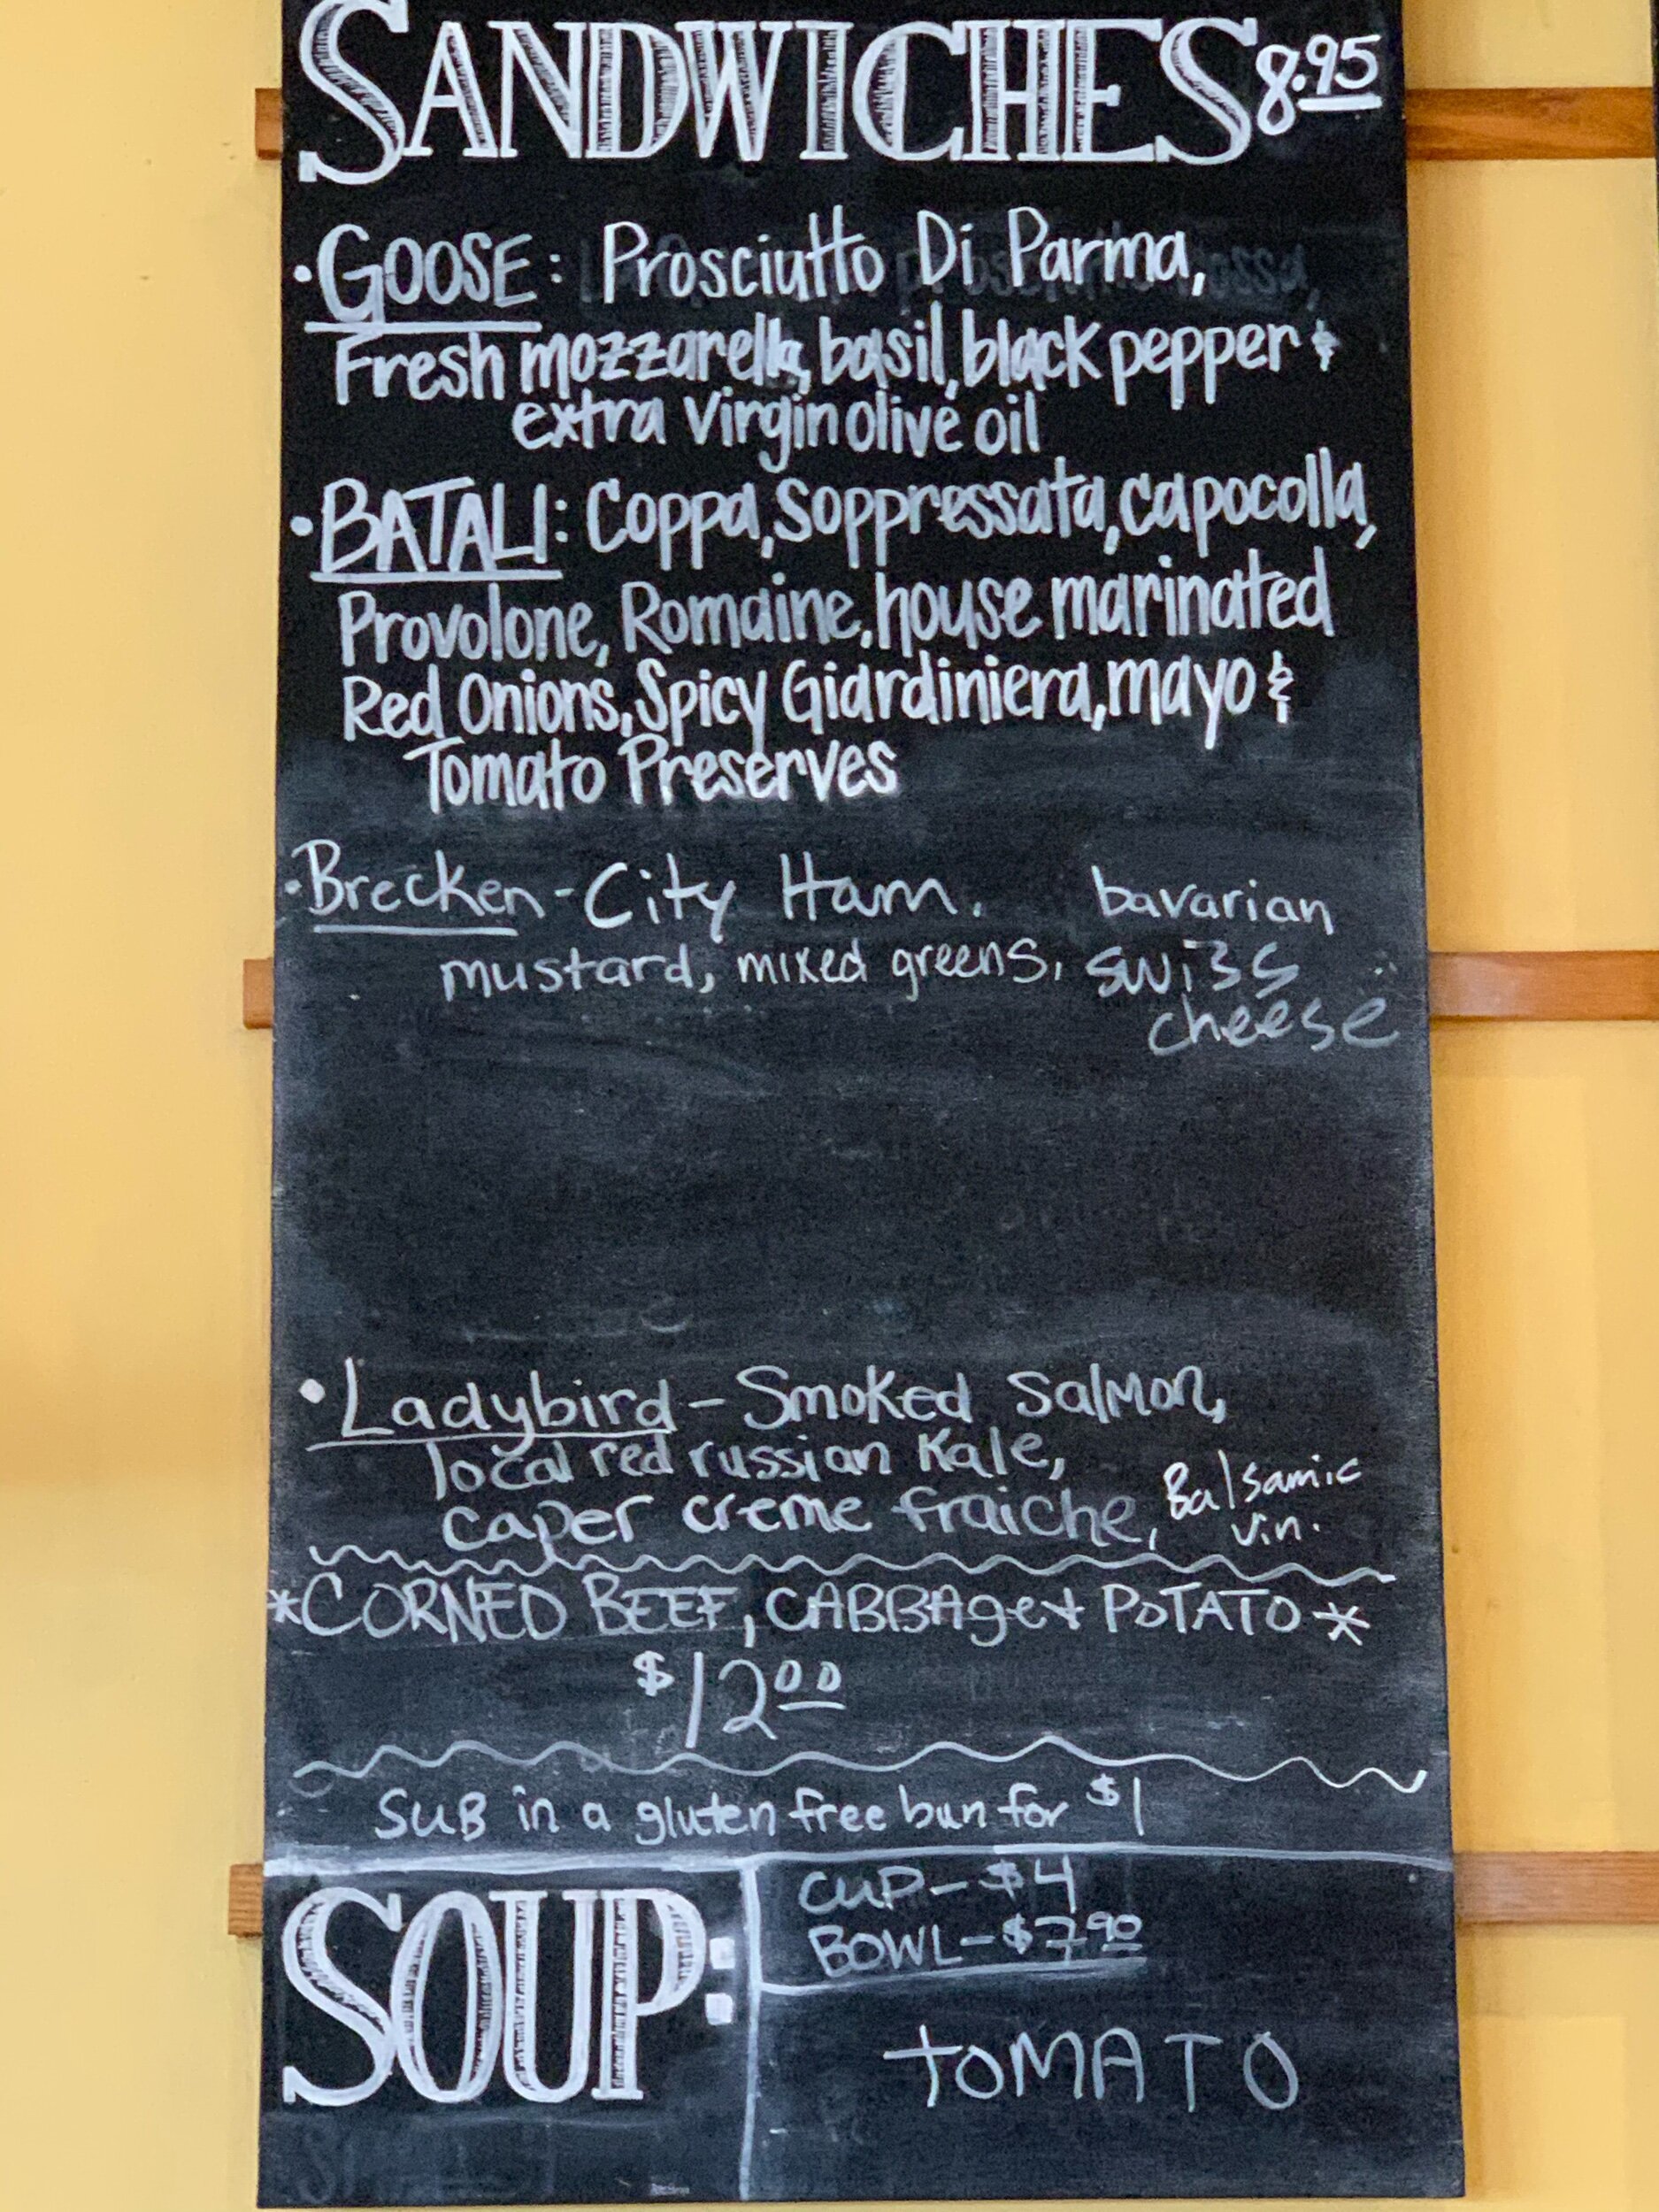 SANDWICHES 8.95
• GOOSE: Prosciutto Di Parma,
Fresh mozzarella, basil, black pepper &
extra virgin olive oil
• BATALI: Coppa, Soppressata, capocolla,
Provolone, Romaine, house marinated
Red Onions, Spicy Giardiniera, mayo &
Tomato Preserves
• Brecken - City Ham, bavarian
mustard, mixed greens, swiss
cheese
• Ladybird - Smoked Salmon,
local red russian Kale,
caper creme fraiche, Balsamic
vin.
*CORNED BEEF, CABBAge + POTATO *
$12.00
SUB in a gluten free bun for $1
SOUP:
CUP - $4
BOWL - $7.90
TOMATO